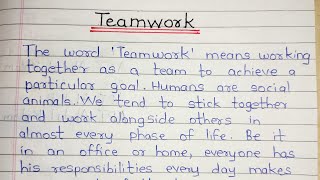 Teamwork
The word 'Teamwork' means working
together as a team to achieve a
particular goal. Humans are social
animals. We tend to stick together
and work alongside others in
almost every phase of life. Be it
in an office or home, everyone has
his responsibilities every day makes